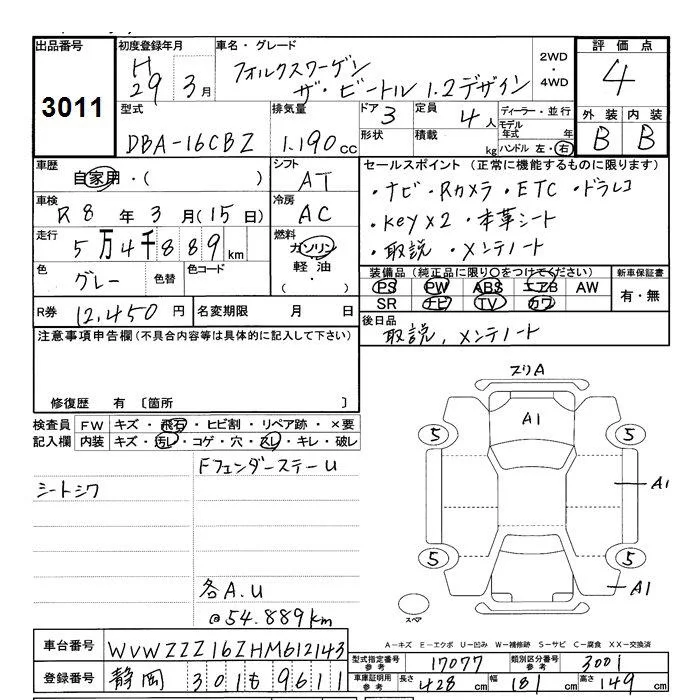 出品番号 初度登録年月 車名・グレード 2WD・4WD 評価点
3011 H29 3月 フォルクスワーゲン ザ・ビートル 1.2デザイン 4
型式 排気量 ドア 3 定員 4人 ディーラー・並行 外装 内装
DBA-16CBZ 1.190cc 形状 積載 kg モデル年式 年 B B
ハンドル 左・右
車歴 自家用・( ) シフト AT セールスポイント (正常に機能するものに限ります)
車検 R8年3月(15日) 冷房 AC ・ナビ・Rカメラ・ETC・ドラレコ
・Key×2 ・本革シート
走行 5万4千889km 燃料 ガソリン 軽油・( ) ・取説 ・メンテノート
色 グレー 色替 色コード 装備品 (純正品に限り○をつけてください) 新車保証書
PS PW ABS エアB AW 有・無
SR ナビ TV カワ
R券 12,450円 名変期限 月 日 後日品
取説、メンテノート
注意事項申告欄(不具合内容等は具体的に記入して下さい)
修復歴 有 〔箇所 〕
検査員記入欄 FW キズ・飛石・ヒビ割・リペア跡・×要
内装 キズ・汚レ・コゲ・穴・スレ・キレ・破レ
FフェンダーステーU
シートシワ
各A.U
@54.889km
スリA
A1
5 5
A1
5 5
A1
スペア
A-キズ E-エクボ U-凹み W-補修跡 S-サビ C-腐食 XX-交換済
車台番号 WVWZZZ16ZHM612143
型式指定番号 参考 17077 類別区分番号 参考 3001
登録番号 静岡 301 も 9611
車庫証明用 参考 長さ 428cm 幅 181cm 高さ 149cm